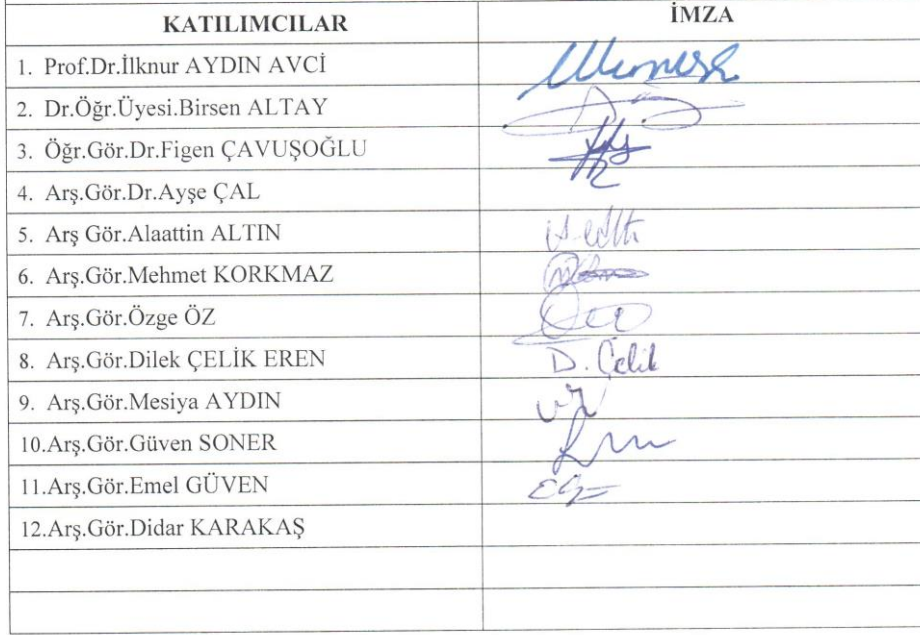 KATILIMCILAR İMZA
1. Prof.Dr.İlknur AYDIN AVCİ
2. Dr.Öğr.Üyesi.Birsen ALTAY
3. Öğr.Gör.Dr.Figen ÇAVUŞOĞLU
4. Arş.Gör.Dr.Ayşe ÇAL
5. Arş Gör.Alaattin ALTIN
6. Arş.Gör.Mehmet KORKMAZ
7. Arş.Gör.Özge ÖZ
8. Arş.Gör.Dilek ÇELİK EREN D. Çelik
9. Arş.Gör.Mesiya AYDIN
10.Arş.Gör.Güven SONER
11.Arş.Gör.Emel GÜVEN
12.Arş.Gör.Didar KARAKAŞ